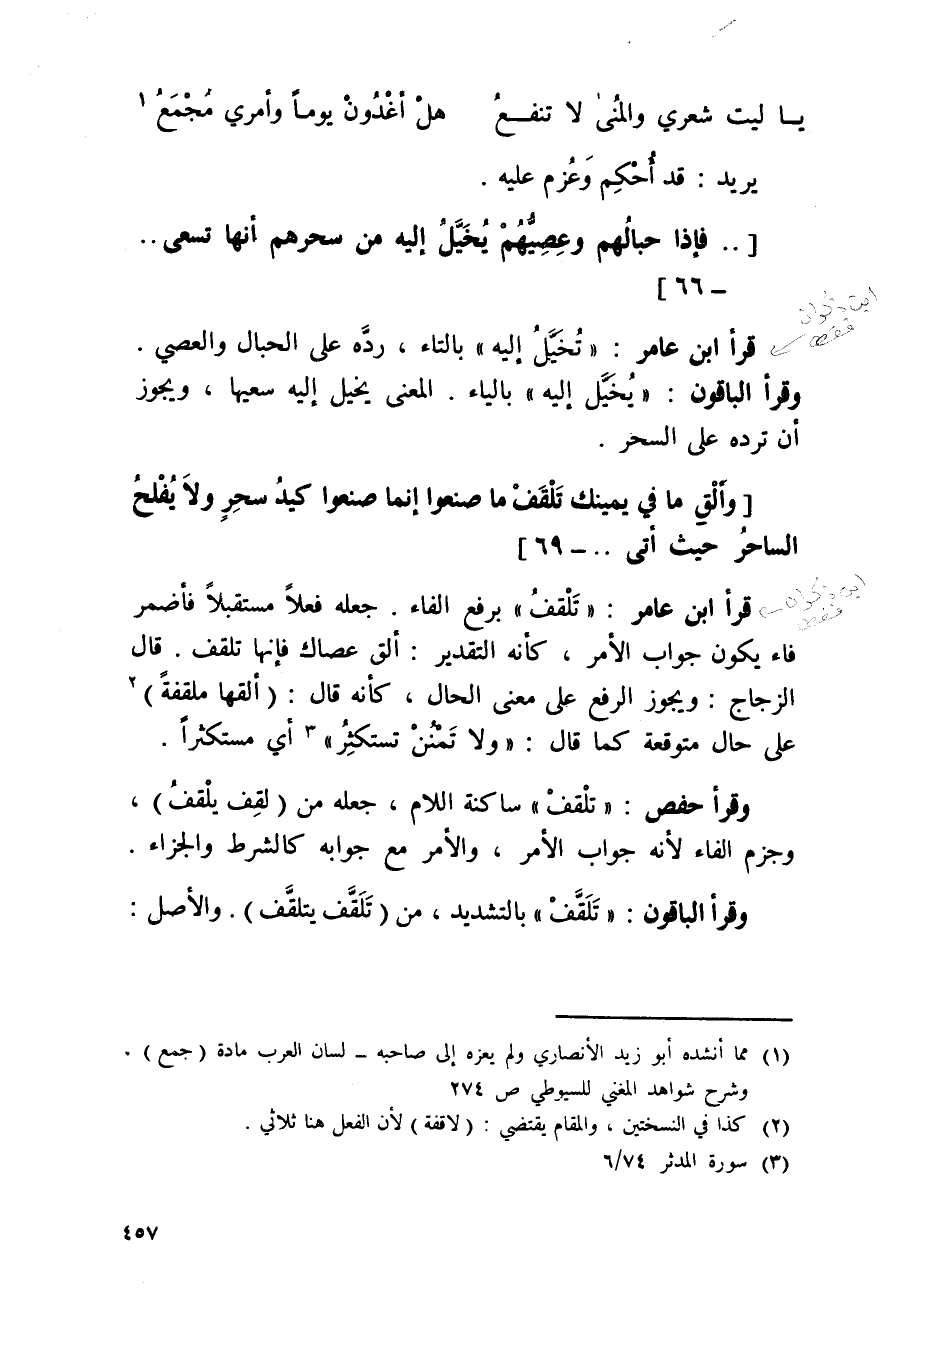 يــا ليت شعري والمُنىٰ لا تنفــعُ هلْ أغْدُونْ يومـاً وأمري مُجْمَعُ ١
يريد : قد أُحْكِم وَعُزم عليه .
[ .. فإذا حبالُهم وعِصِيُّهُمْ يُخَيَّلُ إليه من سحرهم أنها تسعى ..
– ٦٦ ]
ابن ذكوان
فقط
قرأ ابن عامر : « تُخَيَّلُ إليه » بالتاء ، ردَّه على الحبال والعصي .
وقرأ الباقون : « يُخَيَّل إليه » بالياء . المعنى يخيل إليه سعيها ، ويجوز
أن ترده على السحر .
[ وأَلْقِ ما في يمينك تَلْقَفْ ما صنعوا إنما صنعوا كيدُ سحرٍ ولاَ يُفْلحُ
الساحرُ حيث أتى .. – ٦٩ ]
ابن ذكوان
فقط
قرأ ابن عامر : « تَلْقفُ » برفع الفاء . جعله فعلاً مستقبلاً فأضمر
فاء يكون جواب الأمر ، كأنه التقدير : ألق عصاك فإنها تلقف . قال
الزجاج : ويجوز الرفع على معنى الحال ، كأنه قال : ( ألقها ملقفةً ) ٢
على حال متوقعة كما قال : « ولا تَمْنُنْ تستكثِرُ » ٣ أي مستكثراً .
وقرأ حفص : « تلْقفْ » ساكنة اللام ، جعله من ( لقِف يلْقفُ ) ،
وجزم الفاء لأنه جواب الأمر ، والأمر مع جوابه كالشرط والجزاء .
وقرأ الباقون : « تَلَقَّفْ » بالتشديد ، من ( تَلَقَّف يتلقَّف ) . والأصل :
(١) مما أنشده أبو زيد الأنصاري ولم يعزه إلى صاحبه – لسان العرب مادة ( جمع ) .
وشرح شواهد المغني للسيوطي ص ٢٧٤
(٢) كذا في النسختين ، والمقام يقتضي : ( لاقفة ) لأن الفعل هنا ثلاثي .
(٣) سورة المدثر ٦/٧٤
٤٥٧